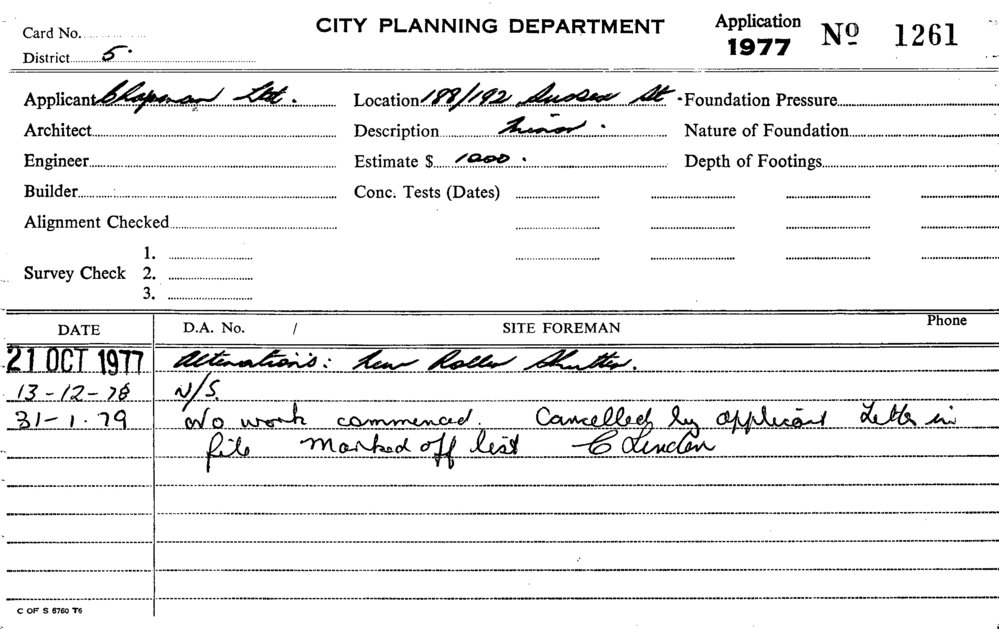 Card No.
District 5.
CITY PLANNING DEPARTMENT
Application
1977
Nº 1261
Applicant Chapman Ltd.
Location 188/192 Sussex St.
Foundation Pressure
Architect
Description Minor.
Nature of Foundation
Engineer
Estimate $ 1000.
Depth of Footings
Builder
Conc. Tests (Dates)
Alignment Checked
Survey Check
1.
2.
3.
DATE
D.A. No. /
SITE FOREMAN
Phone
21 OCT 1977 Alterations: New Roller Shutter.
13-12-78 N/S.
31-1.79 No work commenced. Cancelled by applicant Letter in
file Marked off list C Linden
C OF S 6760 T6